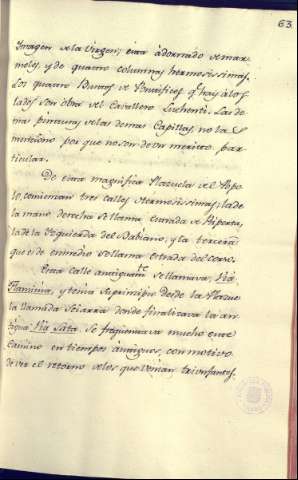 63
Imagen de la Virgen; esta adornado de mar-
moles, y de quatro columnas hermosissimas.
Los quatro Bustos de Pontifices q.e hay à los
lados son obra del Cavallero Luchenti. Las de
mas pinturas de las demas Capillas, no las
menciono por que no son de un merito par-
ticular.
De esta magnifica Plazuela del Popo-
lo, comienzan tres calles dermosissimas; la de
la mano derecha se llama Estrada de Ripeta,
la de la Yzquierda del Babuino, y la tercera
que es de en medio se llama estrada del corso.
Esta calle antiguam.te se llamava, Via
Flaminia, y tenia su principio desde la Plazue-
la llamada Sciarra donde finalizava la an-
tigua Via Lata. Se freguentava mucho este
camino en tiempos antiguos, con motivo
de ver el retorno de los que venian triunfantes.